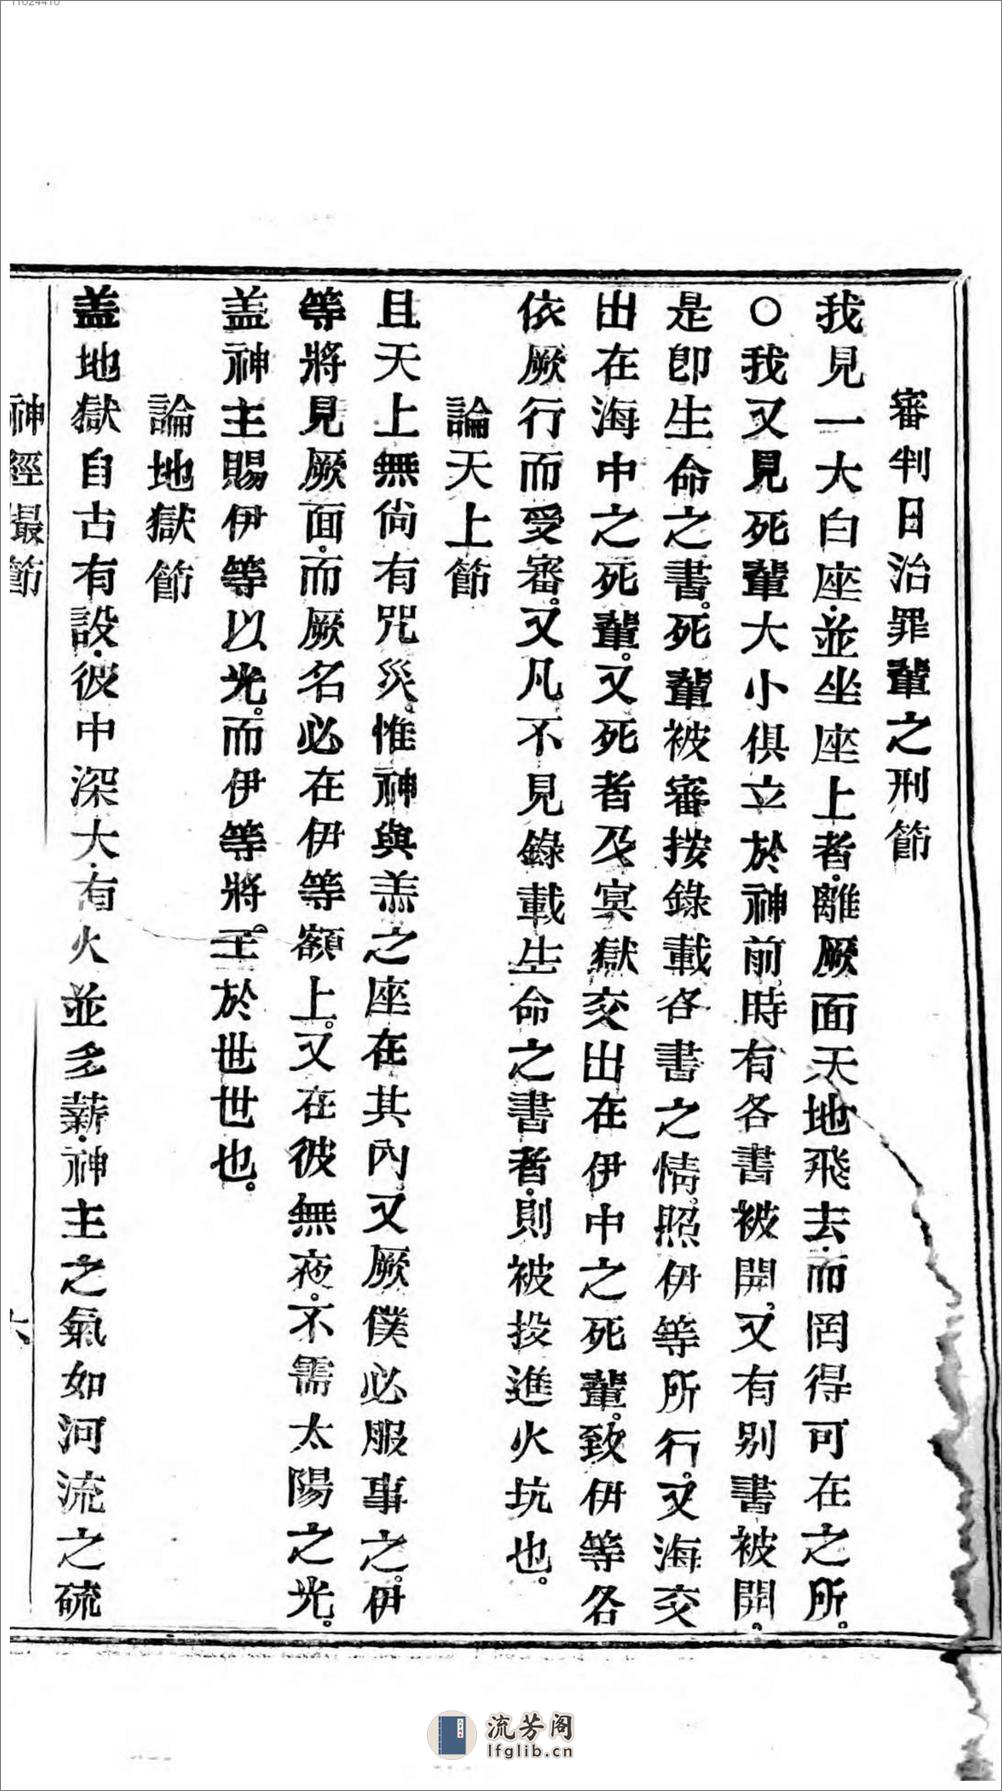 審判日治罪輩之刑節
我見一大白座.並坐座上者.離厥面天地飛去.而罔得可在之所。
○我又見死輩大小俱立於神前.時有各書被開.又有別書被開.
是卽生命之書。死輩被審按錄載各書之情.照伊等所行.又海交
出在海中之死輩。又死者及冥獄交出在伊中之死輩。致伊等各
依厥行而受審。又凡不見錄載生命之書者.則被投進火坑也。
論天上節
且天上無尙有咒災。惟神與羔之座在其內.又厥僕必服事之.伊
等將見厥面.而厥名必在伊等額上.又在彼無夜.不需太陽之光。
盖神主賜伊等以光。而伊等將王於世世也。
論地獄節
盖地獄自古有設.彼中深大.有火並多薪.神主之氣如河流之硫
神經撮節
六
流芳阁
lfglib.cn